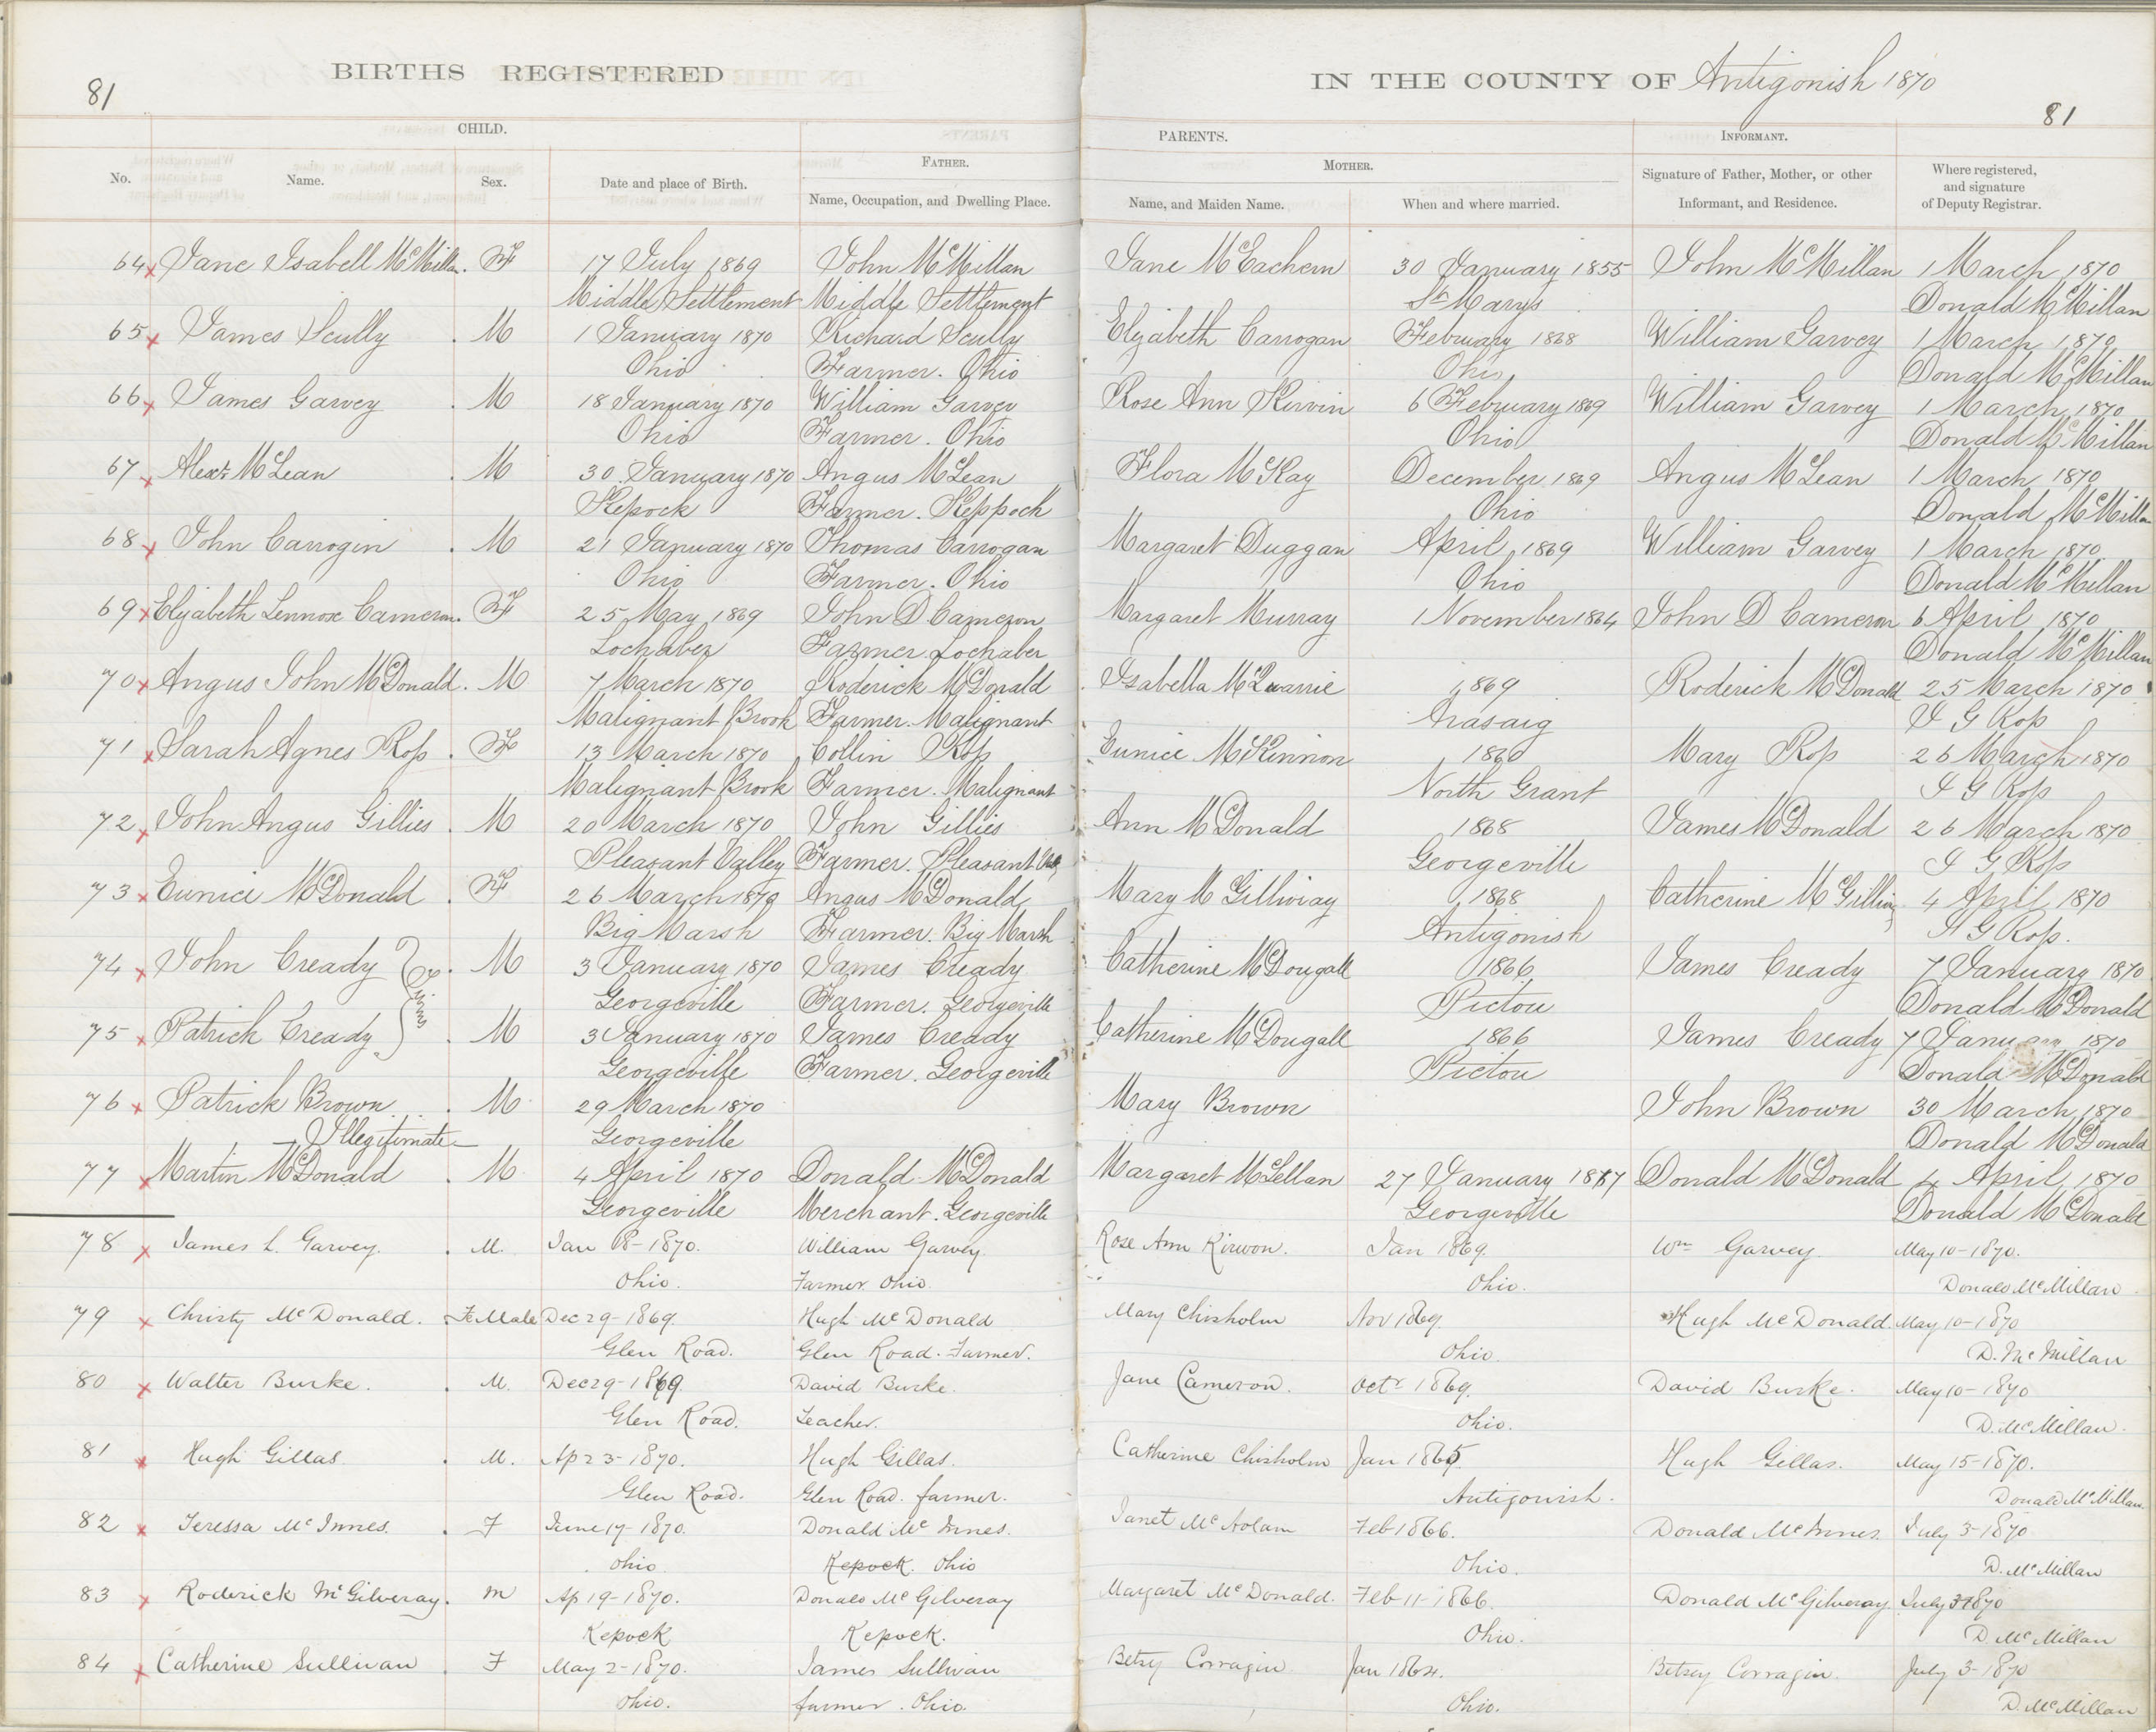 81
BIRTHS REGISTERED
IN THE COUNTY OF Antigonish 1870
81
CHILD.
PARENTS.
INFORMANT.
No.
Name.
Sex.
Date and place of Birth.
FATHER.
Name, Occupation, and Dwelling Place.
MOTHER.
Name, and Maiden Name.
When and where married.
Signature of Father, Mother, or other
Informant, and Residence.
Where registered,
and signature
of Deputy Registrar.
64 x Jane Isabell McMillan. F 17 July 1869 John McMillan Jane McEachern 30 January 1855 John McMillan 1 March 1870
Middle Settlement Middle Settlement St Marys Donald McMillan
65 x James Scully . M 1 January 1870 Richard Scully Elizabeth Carrogan February 1868 William Garvey 1 March 1870
Ohio Farmer. Ohio Ohio Donald McMillan
66 x James Garvey . M 18 January 1870 William Garvey Rose Ann Kirvin 6 February 1869 William Garvey 1 March 1870
Ohio Farmer. Ohio Ohio Donald McMillan
67 x Alexr McLean . M 30 January 1870 Angus McLean Flora McKay December 1869 Angus McLean 1 March 1870
Kepock Farmer. Keppoch Ohio Donald McMillan
68 x John Carrogin . M 21 January 1870 Thomas Carrogan Margaret Duggan April 1869 William Garvey 1 March 1870
Ohio Farmer. Ohio Ohio Donald McMillan
69 x Elizabeth Lennox Cameron. F 25 May 1869 John D. Cameron Margaret Murray 1 November 1864 John D Cameron 6 April 1870
Lochaber Farmer. Lochaber Donald McMillan
70 x Angus John McDonald. M 7 March 1870 Roderick McDonald Isabella McQuarrie 1869 Roderick McDonald 25 March 1870
Malignant Brook Farmer. Malignant Arasaig J G Ross
71 x Sarah Agnes Ross . F 13 March 1870 Collin Ross Eunice McKinnon 1860 Mary Ross 26 March 1870
Malignant Brook Farmer. Malignant North Grant J G Ross
72 x John Angus Gillies . M 20 March 1870 John Gillies Ann McDonald 1868 James McDonald 26 March 1870
Pleasant Valley Farmer. Pleasant Valley Georgeville J G Ross
73 x Eunice McDonald . F 26 March 1870 Angus McDonald Mary McGillivray 1868 Catherine McGillivray 4 April 1870
Big Marsh Farmer. Big Marsh Antigonish J G Ross.
74 x John Cready } Twins . M 3 January 1870 James Cready Catherine McDougall 1866 James Cready 7 January 1870
Georgeville Farmer. Georgeville Pictou Donald McDonald
75 x Patrick Cready } . M 3 January 1870 James Cready Catherine McDougall 1866 James Cready 7 January 1870
Georgeville Farmer. Georgeville Pictou Donald McDonald
76 x Patrick Brown . M 29 March 1870 Mary Brown John Brown 30 March 1870
Illegitimate Georgeville Donald McDonald
77 x Martin McDonald . M 4 April 1870 Donald McDonald Margaret McLellan 27 January 1867 Donald McDonald 4 April 1870
Georgeville Merchant. Georgeville Georgeville Donald McDonald
78 x James L. Garvey. . M. Jan 18-1870. William Garvey. Rose Ann Kirwon. Jan 1869. Wm Garvey. May 10-1870.
Ohio. Farmer Ohio. Ohio. Donald McMillan
79 x Christy McDonald. FeMale Dec 29-1869. Hugh McDonald Mary Chisholm Nov 1869. Hugh McDonald. May 10-1870
Glen Road. Glen Road. Farmer. Ohio. D. McMillan
80 x Walter Burke. . M. Dec 29-1869. David Burke. Jane Cameron. Octr 1869. David Burke. May 10-1870
Glen Road. Teacher. Ohio. D. McMillan.
81 x Hugh Gillas. . M. Ap 23-1870. Hugh Gillas. Catherine Chisholm Jan 1865. Hugh Gillas. May 15-1870.
Glen Road. Glen Road. farmer. Antigonish. Donald McMillan.
82 x Teressa McInnes. . F June 17-1870. Donald McInnes. Janet McAolam Feb 1866. Donald McInnes. July 3-1870
Ohio Kepock. Ohio Ohio. D. McMillan
83 x Roderick McGilveray. M Ap 19-1870. Donald McGilveray Margaret McDonald. Feb 11-1866. Donald McGilveray July 3 1870
Kepock Kepock. Ohio. D. McMillan
84 x Catherine Sullivan . F May 2-1870. James Sullivan Betsy Corragin Jan 1864. Betsey Corragin. July 3-1870
Ohio. farmer. Ohio. Ohio. D. McMillan